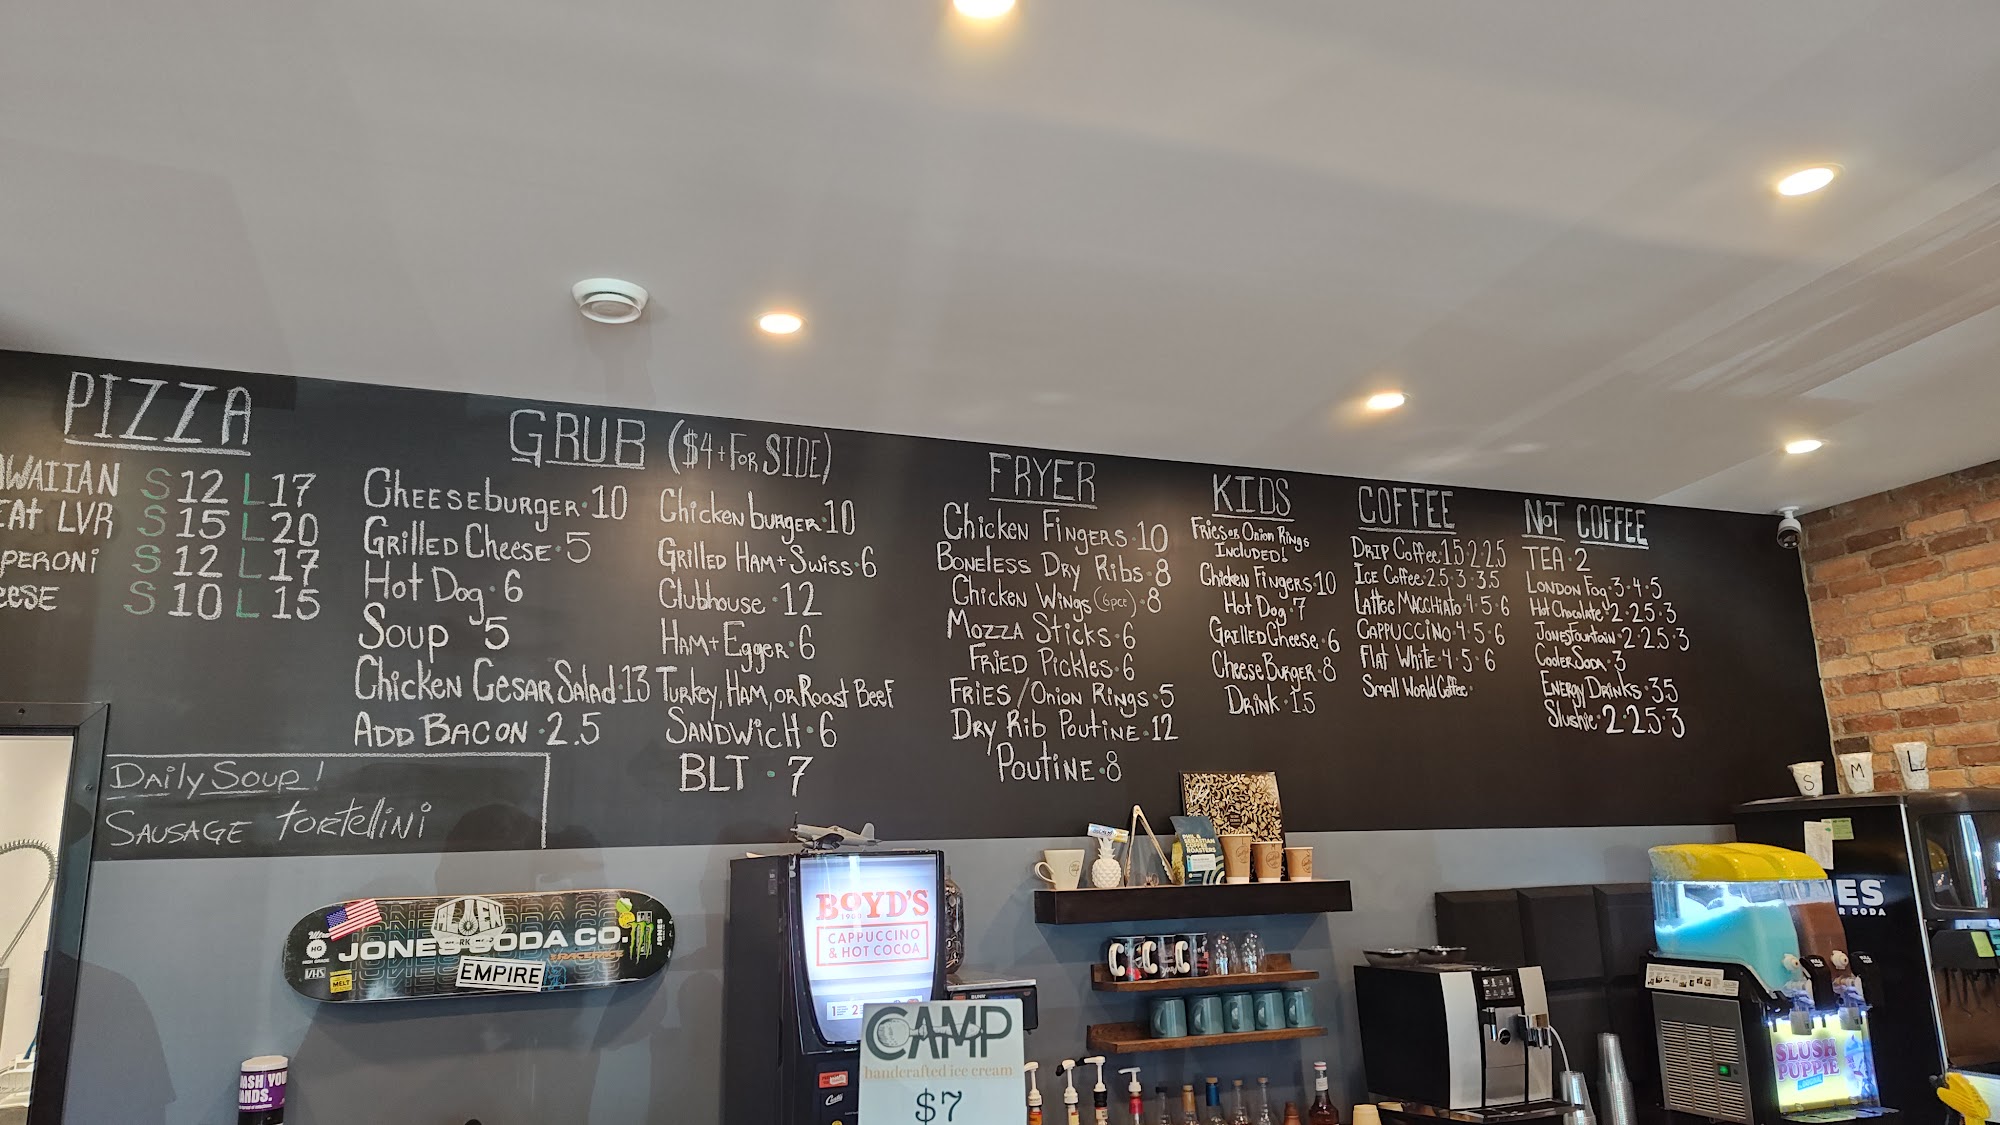 PIZZA
WAIIAN S 12 L 17
EAt LVR S 15 L 20
PERONi S 12 L 17
EESE S 10 L 15
GRUB ($4+FoR SIDE)
CHEESEbURGER·10
GRILLED CHEESE·5
Hot Dog·6
Soup 5
Chicken Cesar Salad·13
ADD BACON·2.5
Chicken burger·10
GRILLED HAM+SWiss·6
Clubhouse·12
HAM+Egger·6
TuRkey, HAM, oR RoAst BeeF
SANDWicH·6
BLT·7
FRYER
Chicken FiNgERS·10
BONELESS DRY RibS·8
Chicken WiNgs (6pce)·8
MOZZA Sticks·6
FRiED Pickles·6
FRiES/Onion RiNgs·5
DRy Rib Poutine·12
POUTINE·8
KIDS
FRies oR Onion RiNgs
INCLUDED!
Chicken FiNgERS·10
Hot Dog·7
GRilled Cheese·6
Cheese BurgeR·8
DRink·1.5
COFFEE
DRip Coffee·1.5·2·2.5
Ice Coffee·2.5·3·3.5
LAttee MACChiAto·4·5·6
CAPPUCCiNO·4·5·6
FlAt White·4·5·6
SmAll WoRld Coffee·
NoT COFFEE
TEA·2
LONDON Fog·3·4·5
Hot Chocolate·2·2.5·3
Jones Fountain·2·2.5·3
Cooler Soda·3
ENERgy DRiNks·3.5
Slushie·2·2.5·3
DAily Soup!
SAUSAGE toRtellini
S
M
L
ALIEN
JONES SODA CO.
HQ
VHS
MELT
EMPIRE
JONES
BOYD'S
1900
CAPPUCCINO
& HOT COCOA
1 2
CAMP
handcrafted ice cream
$7
PHIL &
SEBASTIAN
COFFEE
ROASTERS
C C C
ES
R SODA
SLUSH
PUPPiE
ASH YOU
ANDS.